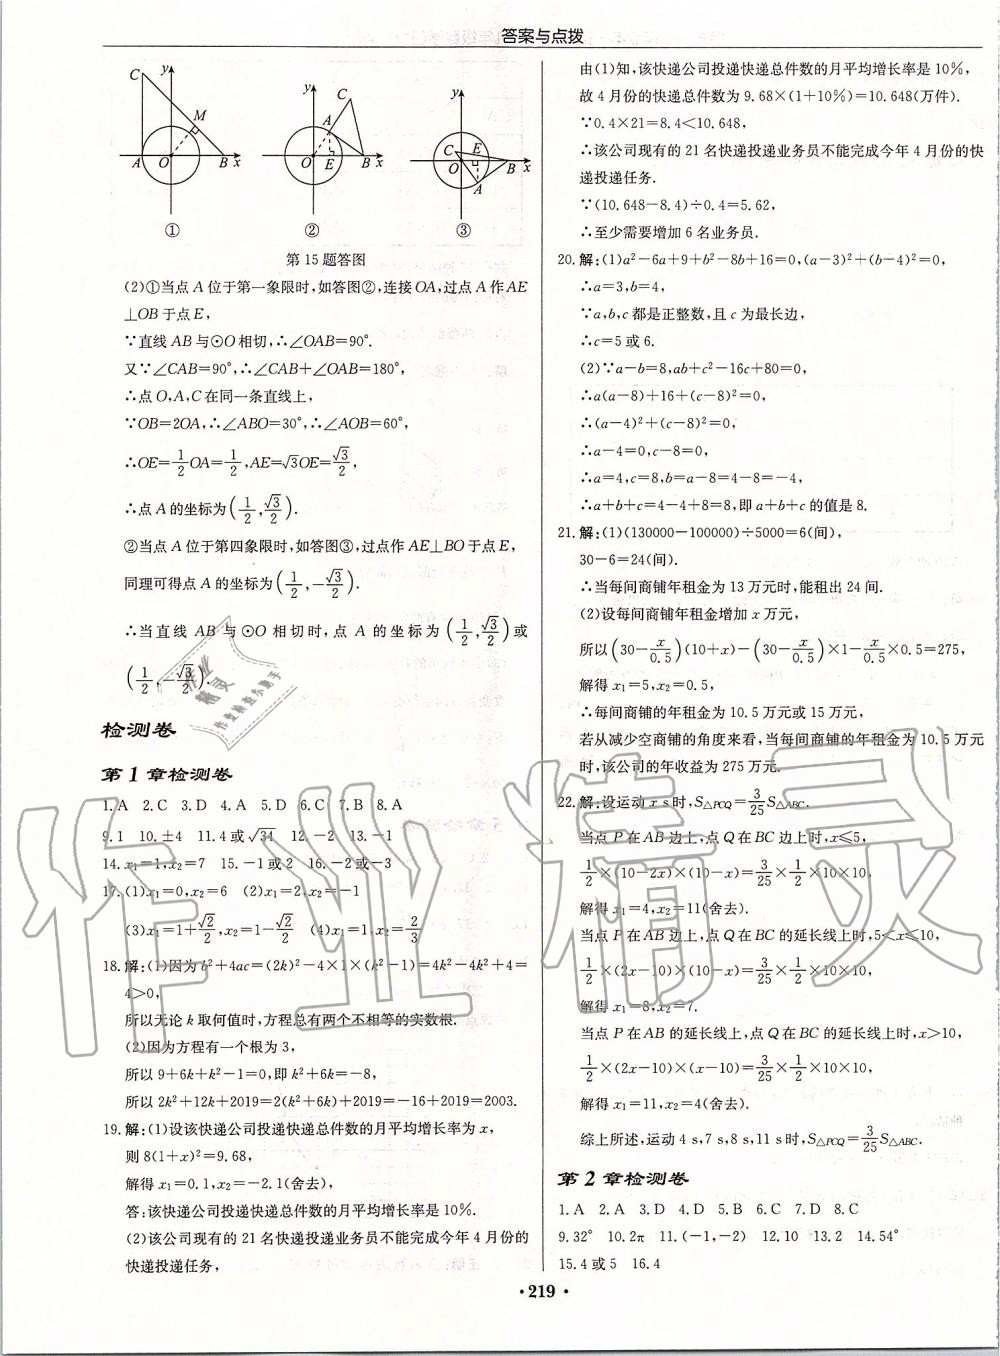 答案与点拨
① ② ③
第15题答图
(2)①当点A位于第一象限时,如答图②,连接OA,过点A作AE
⊥OB于点E,
∵直线AB与⊙O相切,∴∠OAB=90°.
又∵∠CAB=90°,∴∠CAB+∠OAB=180°,
∴点O,A,C在同一条直线上,
∵OB=2OA,∴∠ABO=30°,∴∠AOB=60°,
∴OE=1/2OA=1/2,AE=√3OE=√3/2,
∴点A的坐标为(1/2,√3/2).
②当点A位于第四象限时,如答图③,过点作AE⊥BO于点E,
同理可得点A的坐标为(1/2,-√3/2).
∴当直线AB与⊙O相切时,点A的坐标为(1/2,√3/2)或
(1/2,-√3/2).
检测卷
第1章检测卷
1.A 2.C 3.D 4.A 5.D 6.C 7.B 8.A
9.1 10.±4 11.4或√34 12.-2 13.-1
14.x₁=1,x₂=7 15.-1或2 16.-2或-3
17.(1)x₁=0,x₂=6 (2)x₁=2,x₂=-1
(3)x₁=1+√2/2,x₂=1-√2/2 (4)x₁=1,x₂=2/3
18.解:(1)因为b²+4ac=(2k)²-4×1×(k²-1)=4k²-4k²+4=
4>0,
所以无论k取何值时,方程总有两个不相等的实数根.
(2)因为方程有一个根为3,
所以9+6k+k²-1=0,即k²+6k=-8,
所以2k²+12k+2019=2(k²+6k)+2019=-16+2019=2003.
19.解:(1)设该快递公司投递快递总件数的月平均增长率为x,
则8(1+x)²=9.68,
解得x₁=0.1,x₂=-2.1(舍去),
答:该快递公司投递快递总件数的月平均增长率是10%.
(2)该公司现有的21名快递投递业务员不能完成今年4月份的
快递投递任务,
由(1)知,该快递公司投递快递总件数的月平均增长率是10%,
故4月份的快递总件数为9.68×(1+10%)=10.648(万件).
∵0.4×21=8.4<10.648,
∴该公司现有的21名快递投递业务员不能完成今年4月份的快
递投递任务.
∵(10.648-8.4)÷0.4=5.62,
∴至少需要增加6名业务员.
20.解:(1)a²-6a+9+b²-8b+16=0,(a-3)²+(b-4)²=0,
∴a=3,b=4,
∵a,b,c都是正整数,且c为最长边,
∴c=5或6.
(2)∵a-b=8,ab+c²-16c+80=0,
∴a(a-8)+16+(c-8)²=0,
∴(a-4)²+(c-8)²=0,
∴a-4=0,c-8=0,
∴a=4,c=8,b=a-8=4-8=-4,
∴a+b+c=4-4+8=8,即a+b+c的值是8.
21.解:(1)(130000-100000)÷5000=6(间),
30-6=24(间).
∴当每间商铺年租金为13万元时,能租出24间.
(2)设每间商铺年租金增加x万元,
所以(30-x/0.5)(10+x)-(30-x/0.5)×1-x/0.5×0.5=275,
解得x₁=5,x₂=0.5,
∴每间商铺的年租金为10.5万元或15万元,
若从减少空商铺的角度来看,当每间商铺的年租金为10.5万元
时,该公司的年收益为275万元.
22.解:设运动x s时,S△PCQ=3/25S△ABC.
当点P在AB边上,点Q在BC边上时,x≤5,
1/2×(10-2x)×(10-x)=3/25×1/2×10×10,
解得x₁=4,x₂=11(舍去).
当点P在AB边上,点Q在BC的延长线上时,5<x≤10,
1/2×(2x-10)×(10-x)=3/25×1/2×10×10,
解得x₁=8,x₂=7.
当点P在AB的延长线上,点Q在BC的延长线上时,x>10,
1/2×(2x-10)×(x-10)=3/25×1/2×10×10,
解得x₁=11,x₂=4(舍去).
综上所述,运动4 s,7 s,8 s,11 s时,S△PCQ=3/25S△ABC.
第2章检测卷
1.A 2.A 3.D 4.D 5.B 6.C 7.D 8.C
9.32° 10.2π 11.(-1,-2) 12.10 13.2 14.54°
15.4或5 16.4
·219·
作业精灵